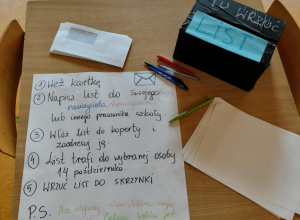 TU WRZUĆ
LIST
① Weź kartkę
② Napisz list do swojego
nauczyciela
lub innego pracownika szkoły.
③ Włóż list do koperty i
zaadresuj ją.
④ List trafi do wybranej osoby
14 października
⑤ WRZUĆ LIST DO SKRZYNKI
P.S. Na